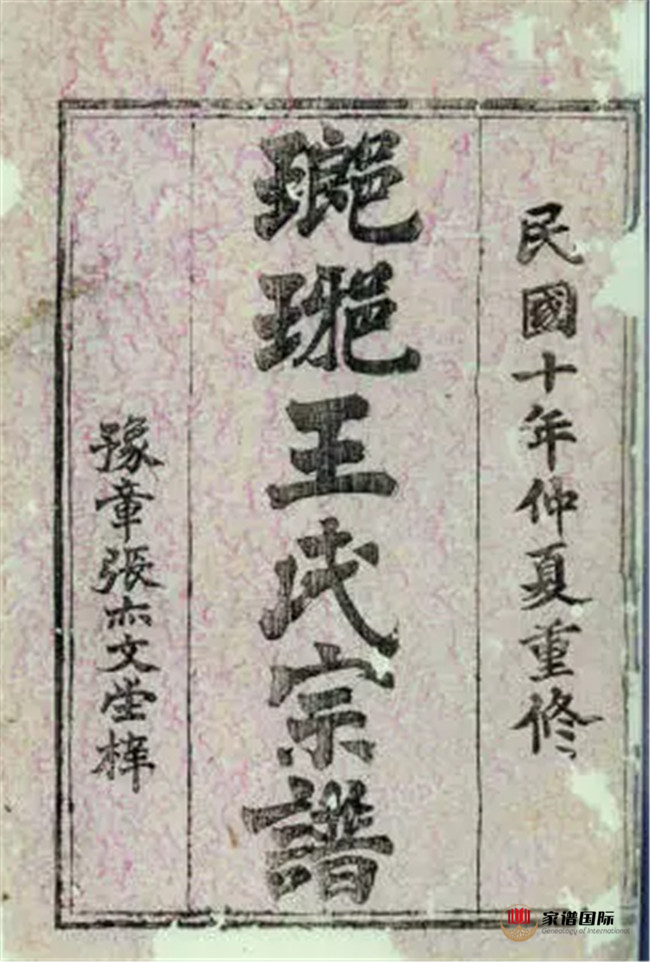 民國十年仲夏重修
瑯琊王氏宗譜
豫章張亦文堂梓
家谱国际
Genealogy of International